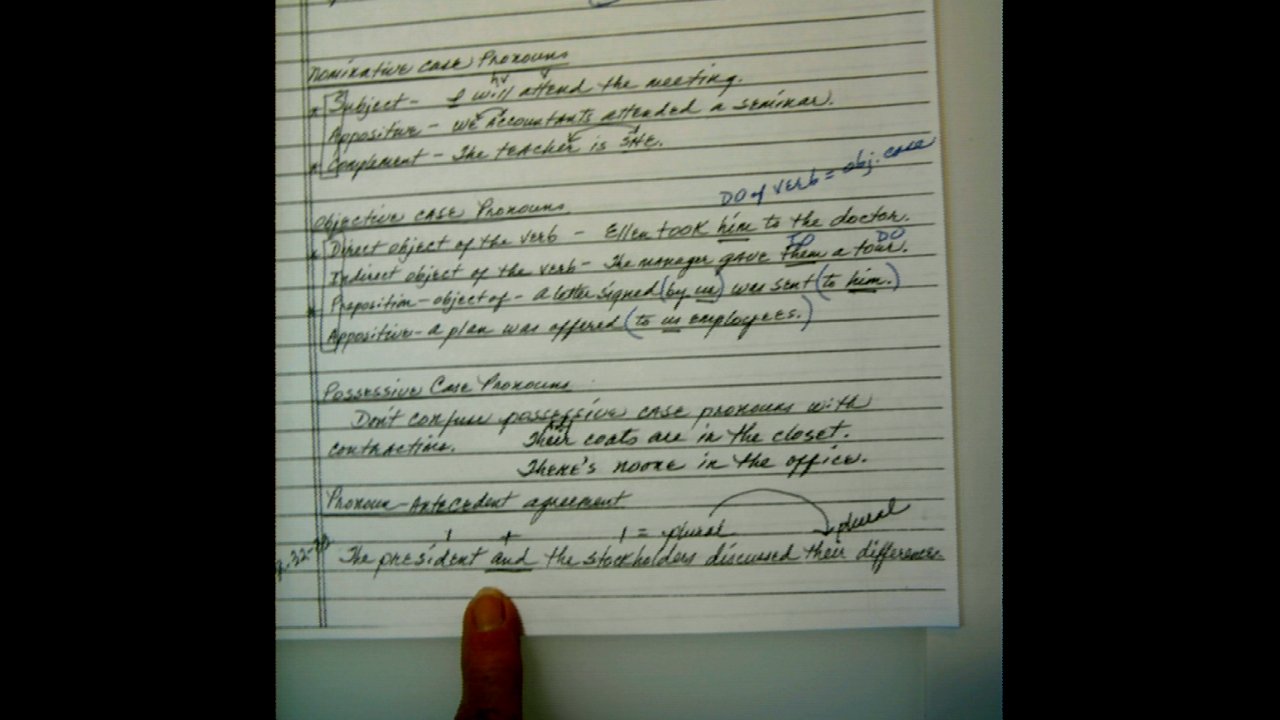 Nominative Case Pronouns
hv v
* Subject - I will attend the meeting.
Appositive - we Accountants attended a seminar.
* Complement - The teacher is SHE.
DO of verb = obj. case
Objective Case Pronouns
* Direct object of the verb - Ellen took him to the doctor.
IO DO
Indirect object of the verb - The manager gave them a tour.
* Preposition - object of - a letter signed (by us) was sent (to him.)
Appositive - a plan was offered (to us employees.)
Possessive Case Pronouns
Don't confuse possessive case pronouns with
contractions. Their coats are in the closet.
There's noone in the office.
Pronoun - Antecedent agreement
1 + 1 = plural plural
The president and the stockholders discussed their differences.